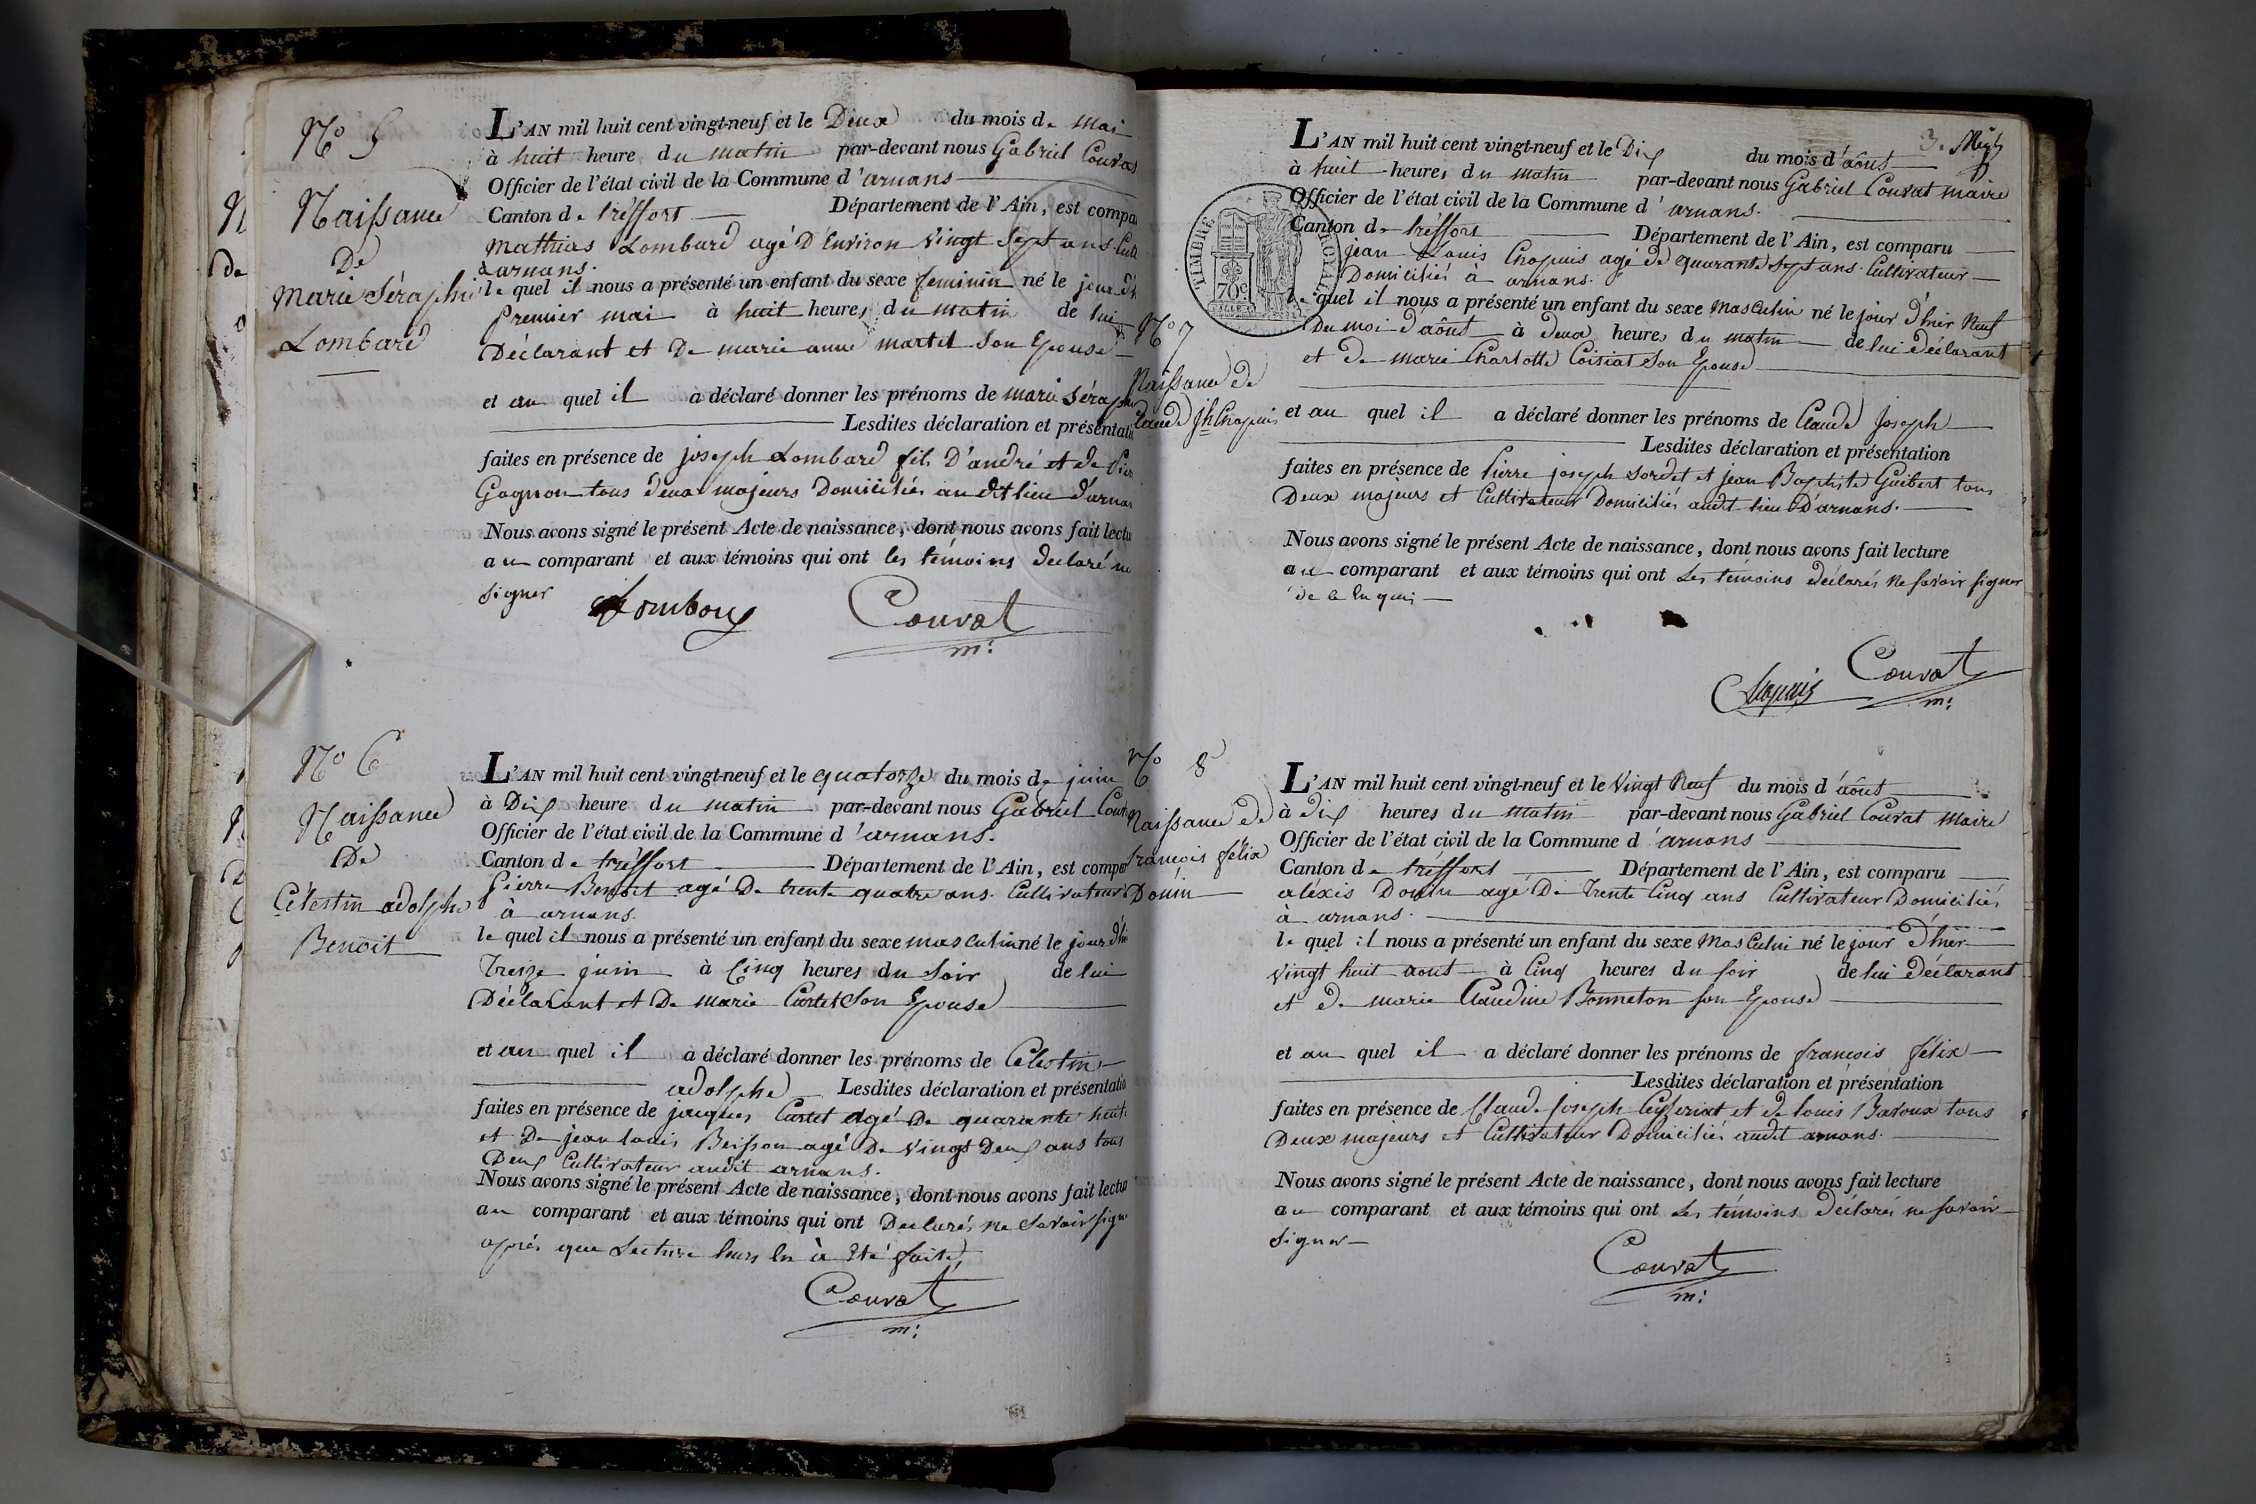 N.º 5
Naissance
De
Marie Séraphi
Lombard
L'AN mil huit cent vingt-neuf et le Deux du mois de Mai
à huit heure du matin par-devant nous Gabriel Couvat
Officier de l'état civil de la Commune d'arnans
Canton de tréffort Département de l'Ain, est compa
Matthias Lombard agé D'Environ Vingt Sept ans Cult
à arnans.
le quel il nous a présenté un enfant du sexe feminin né le jour d'h
premier mai à huit heures du matin de lui
Déclarant et De marie anne martel Son Epouse
et au quel il a déclaré donner les prénoms de marie Séraph
Lesdites déclaration et présentati
faites en présence de joseph Lombard fils D'andré et de Pier
Gagnon tous deux majeurs Domiciliés au dit lieu d'arnan
Nous avons signé le présent Acte de naissance, dont nous avons fait lectu
au comparant et aux témoins qui ont les témoins declaré ne
signer
Couvat
m:
N.º 6
Naissance
De
Célestin adolphe
Benoit
L'AN mil huit cent vingt-neuf et le quatorze du mois de juin
à Dix heure du matin par-devant nous Gabriel Couv
Officier de l'état civil de la Commune d'arnans.
Canton de tréffort Département de l'Ain, est compar
Pierre Benoit agé De trente quatre ans Cultivateur
à arnans.
le quel il nous a présenté un enfant du sexe masculin né le jour d'hi
Treize juin à Cinq heures du Soir de lui
Déclarant et De marie Curtet Son Epouse
et au quel il a déclaré donner les prénoms de Célestin
adolphe Lesdites déclaration et présentatio
faites en présence de jacques Curtet agé De quarante huit
et De jean louis Beisson agé De Vingt Deux ans tous
Deux Cultivateur audit arnans.
Nous avons signé le présent Acte de naissance, dont nous avons fait lectur
au comparant et aux témoins qui ont Declarés ne Savoir Sign
après que Lecture leurs En à Eté faite,
Couvat
m:
3.
TIMBRE ROYAL
70c
N.º 7
Naissance de
Claude Jh Chapuis
L'AN mil huit cent vingt-neuf et le Dix du mois d'août
à huit heures du matin par-devant nous Gabriel Couvat maire
Officier de l'état civil de la Commune d'arnans.
Canton de tréffort Département de l'Ain, est comparu
jean Louis Chapuis agé de quarante Sept ans Cultivateur
Domiciliés à arnans.
le quel il nous a présenté un enfant du sexe Masculin né le jour d'hier Neuf
Du moi d'août à deux heures du matin de lui déclarant
et de marie Charlotte Coisiat Son Epouse
et au quel il a déclaré donner les prénoms de Claude Joseph
Lesdites déclaration et présentation
faites en présence de Pierre joseph Sordet et jean Baptiste Guibert tous
Deux majeurs et Cultivateur Domiciliés audit lieu D'arnans.
Nous avons signé le présent Acte de naissance, dont nous avons fait lecture
au comparant et aux témoins qui ont Les témoins déclarés ne Savoir signer
de ce Enquis
Chapuis Couvat
m:
N.º 8
Naissance de
francois félix
Donin
L'AN mil huit cent vingt-neuf et le Vingt Neuf du mois d'août
à dix heures du matin par-devant nous Gabriel Couvat Maire
Officier de l'état civil de la Commune d'arnans
Canton de tréffort Département de l'Ain, est comparu
aléxis Donin agé De Trente Cinq ans Cultivateur Domiciliés
à arnans.
le quel il nous a présenté un enfant du sexe Masculin né le jour d'hier
Vingt huit aout à Cinq heures du soir de lui Déclarant
et de marie Claudine Bonneton son Epouse
et au quel il a déclaré donner les prénoms de francois félix
Lesdites déclaration et présentation
faites en présence de Claude Joseph Ceyzeriat et de louis Baroux tous
Deux majeurs et Cultivateur Domiciliés audit arnans.
Nous avons signé le présent Acte de naissance, dont nous avons fait lecture
au comparant et aux témoins qui ont Les témoins Déclarés ne savoir
Signer
Couvat
m: